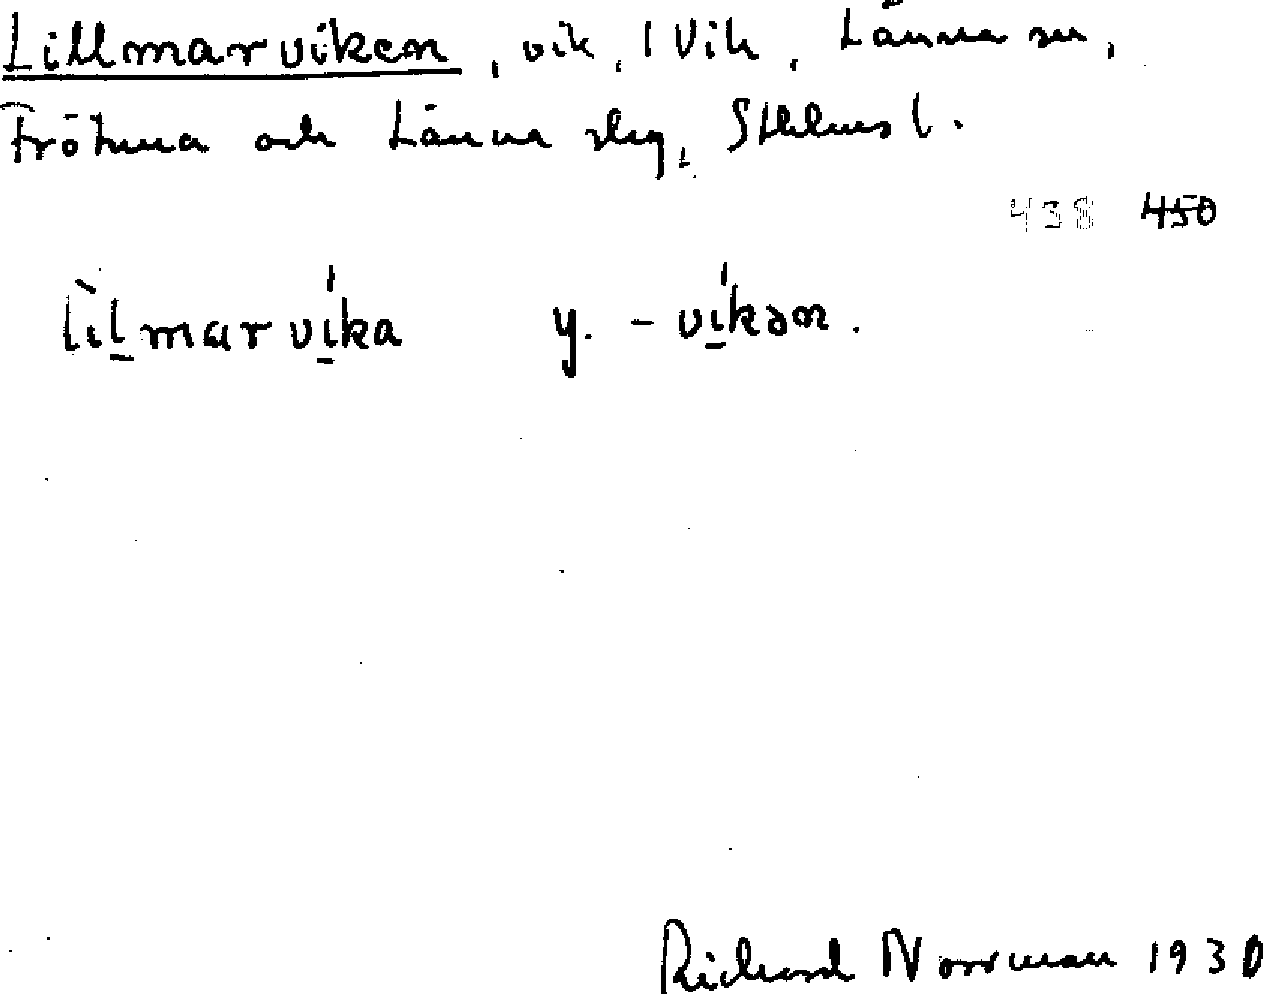 Lillmarviken, vik, 1 Vik, Länna sn,
Frötuna och Länna slg, Sthlms l.
438 450
lìlmarvika y. -vikən.
Richard Norrman 1930